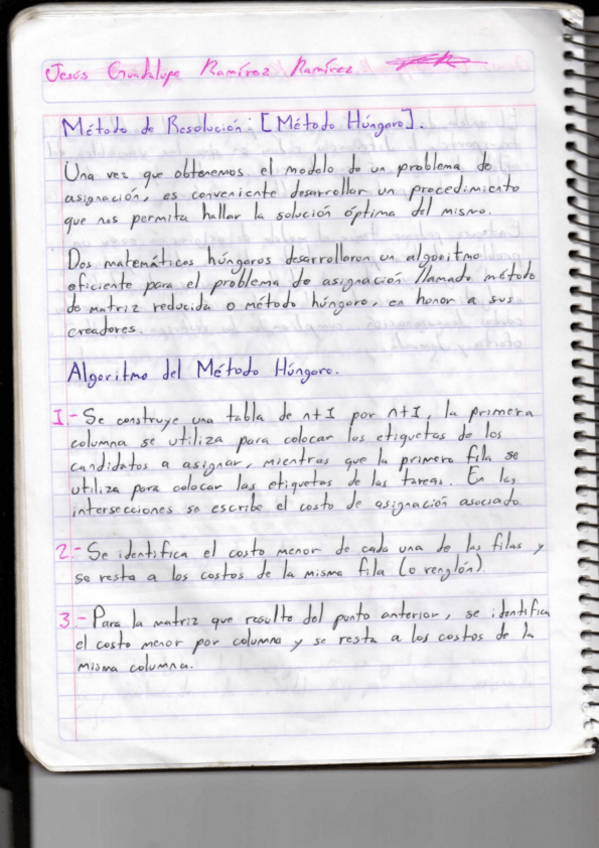 Jesús Guadalupe Ramírez Ramírez
Método de Resolución: [Método Húngaro].
Una vez que obtenemos el modelo de un problema de
asignación, es conveniente desarrollar un procedimiento
que nos permita hallar la solución óptima del mismo.
Dos matemáticos húngaros desarrollaron un algoritmo
eficiente para el problema de asignación llamado método
de matriz reducida o método húngaro, en honor a sus
creadores.
Algoritmo del Método Húngaro.
1.- Se construye una tabla de n+1 por n+1, la primera
columna se utiliza para colocar las etiquetas de los
candidatos a asignar, mientras que la primera fila se
utiliza para colocar las etiquetas de las tareas. En las
intersecciones se escribe el costo de asignación asociado.
2.- Se identifica el costo menor de cada una de las filas y
se resta a los costos de la misma fila (o renglón)
3.- Para la matriz que resulto del punto anterior, se identifica
el costo menor por columna y se resta a los costos de la
misma columna.